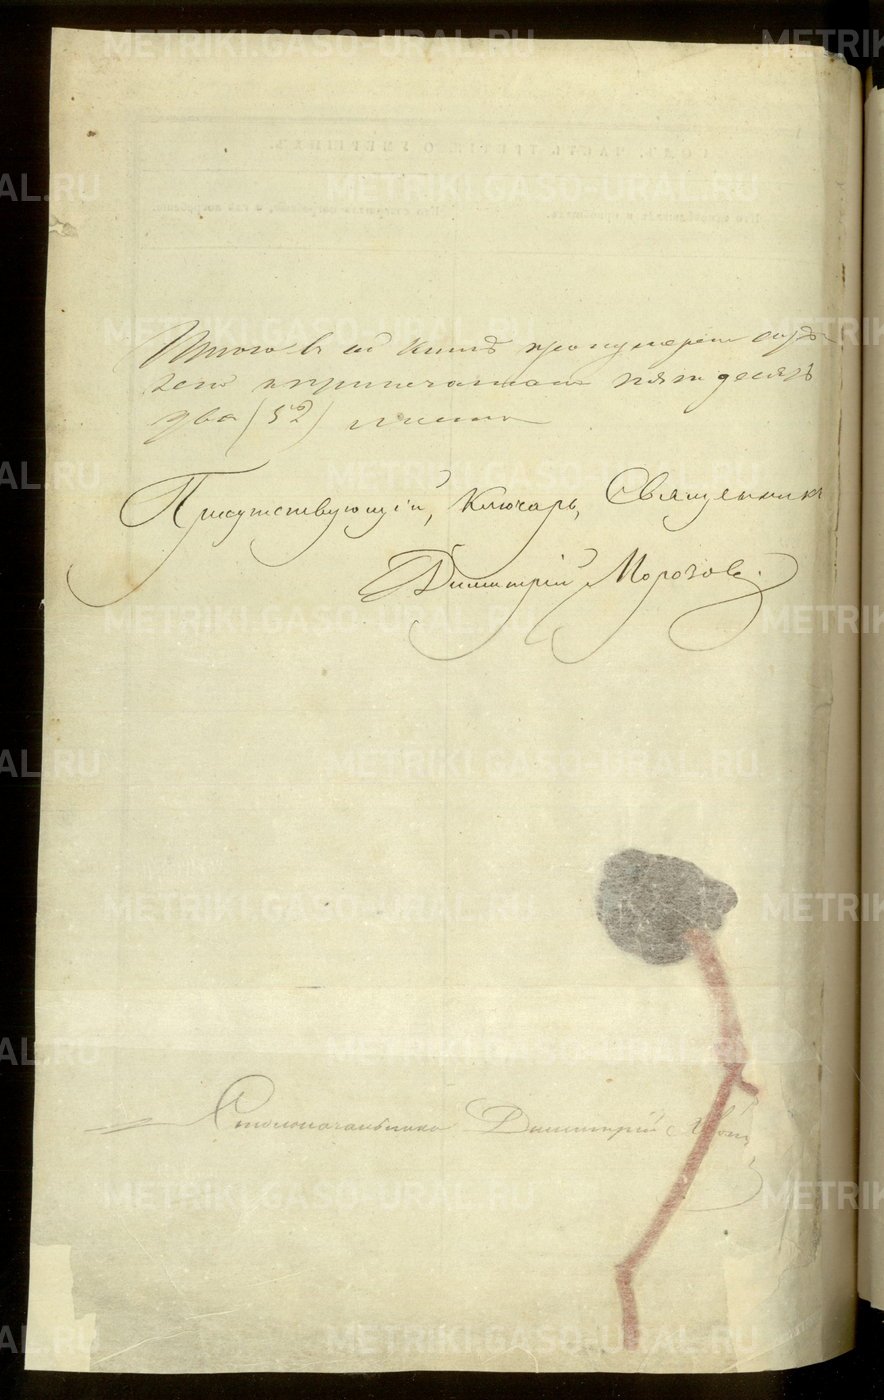 Итого въ сей книгѣ пронумеровано
и припечатано пятьдесятъ
два (52) листа
Присутствующій, Ключарь, Священникъ
Димитрій Морозовъ.
Столоначальникъ Димитрій
METRIKI.GASO-URAL.RU